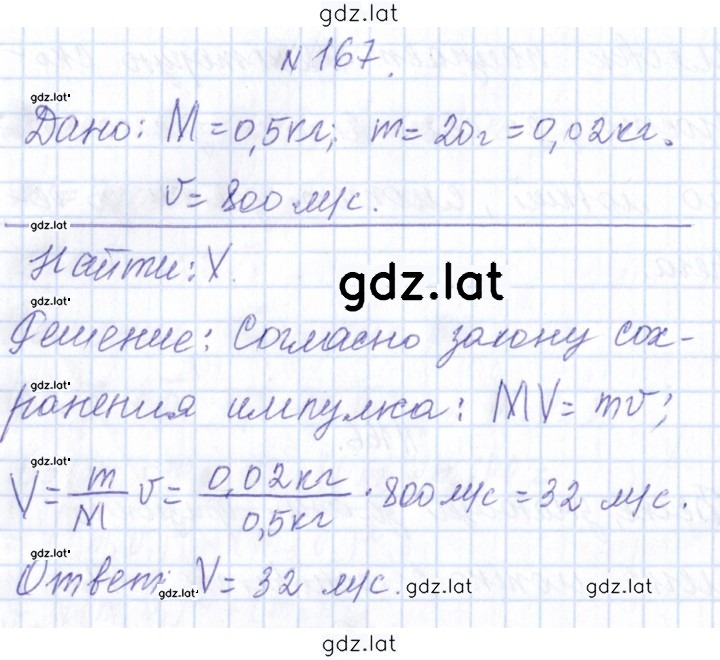 gdz.lat
№167.
gdz.lat
Дано: M = 0,5кг; m = 20г = 0,02кг.
v = 800 м/с.
gdz.lat
gdz.lat
gdz.lat
Найти: V.
gdz.lat
gdz.lat
Решение: Согласно закону сох-
gdz.lat
ранения импулка: MV = mv;
gdz.lat
V = m/M v = 0,02кг/0,5кг · 800 м/с = 32 м/с.
gdz.lat
Ответ: V = 32 м/с.
gdz.lat
gdz.lat
gdz.lat
gdz.lat